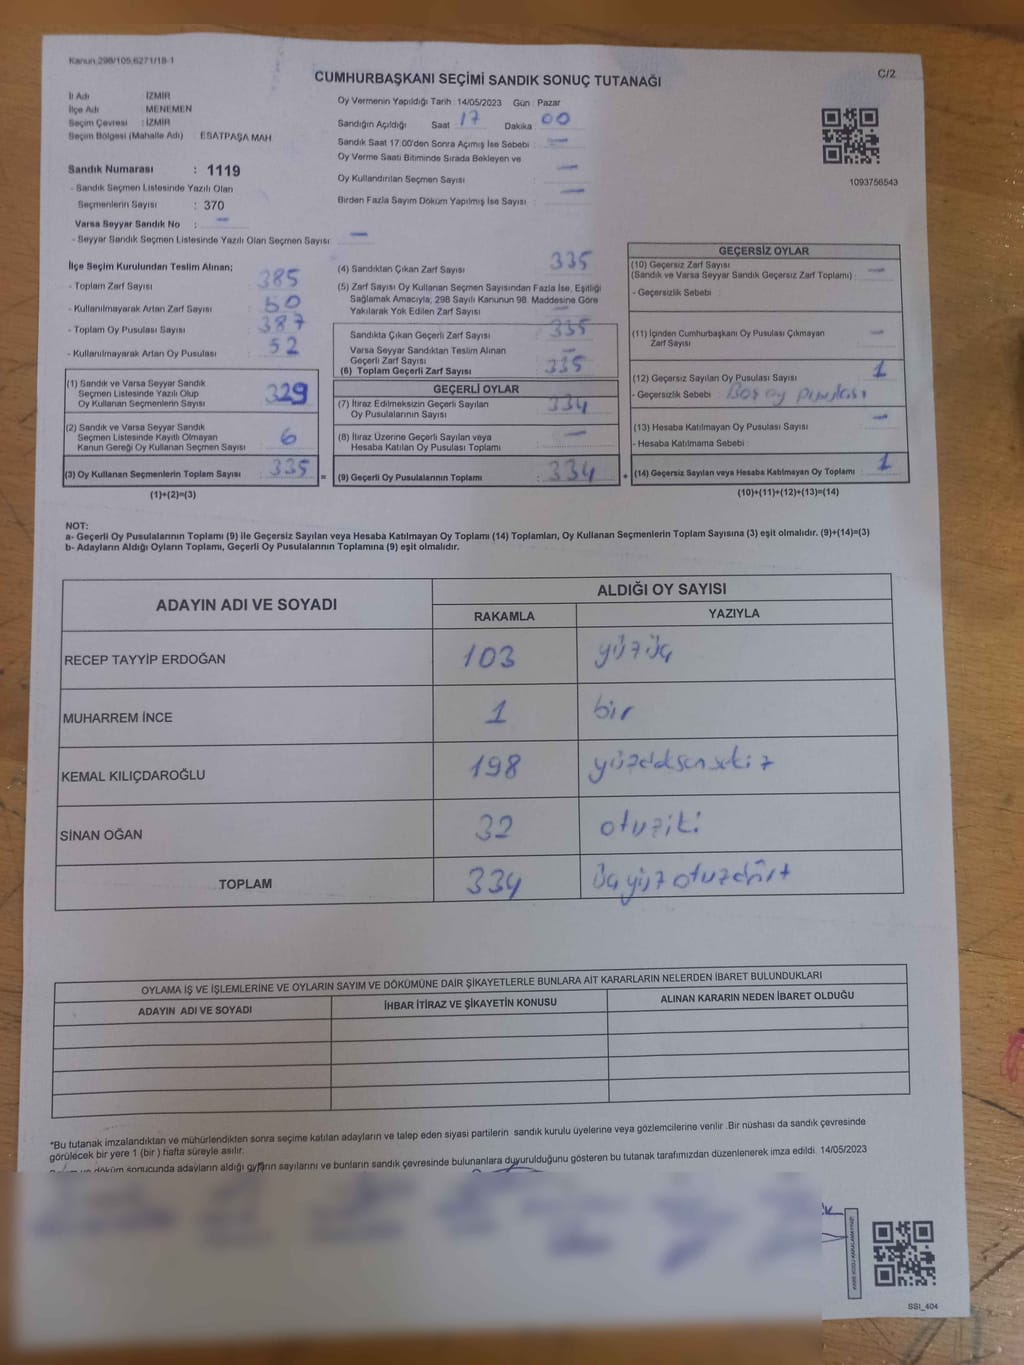 Kanun.298/105,6271/18-1
CUMHURBAŞKANI SEÇİMİ SANDIK SONUÇ TUTANAĞI
C/2
İl Adı : İZMİR
İlçe Adı : MENEMEN
Seçim Çevresi : İZMİR
Seçim Bölgesi (Mahalle Adı) ESATPAŞA MAH
Sandık Numarası : 1119
- Sandık Seçmen Listesinde Yazılı Olan
Seçmenlerin Sayısı : 370
Varsa Seyyar Sandık No : —
- Seyyar Sandık Seçmen Listesinde Yazılı Olan Seçmen Sayısı: —
Oy Vermenin Yapıldığı Tarih :14/05/2023 Gün : Pazar
Sandığın Açıldığı Saat 17 Dakika 00
Sandık Saat 17:00'den Sonra Açımış İse Sebebi : —
Oy Verme Saati Bitiminde Sırada Bekleyen ve
Oy Kullandırılan Seçmen Sayısı —
Birden Fazla Sayım Döküm Yapılmış İse Sayısı : —
1093756543
İlçe Seçim Kurulundan Teslim Alınan;
- Toplam Zarf Sayısı : 385
- Kullanılmayarak Artan Zarf Sayısı : 50
- Toplam Oy Pusulası Sayısı : 387
- Kullanılmayarak Artan Oy Pusulası : 52
(1) Sandık ve Varsa Seyyar Sandık
Seçmen Listesinde Yazılı Olup
Oy Kullanan Seçmenlerin Sayısı 329
(2) Sandık ve Varsa Seyyar Sandık
Seçmen Listesinde Kayıtlı Olmayan
Kanun Gereği Oy Kullanan Seçmen Sayısı 6
(3) Oy Kullanan Seçmenlerin Toplam Sayısı : 335
(1)+(2)=(3)
=
(4) Sandıktan Çıkan Zarf Sayısı 335
(5) Zarf Sayısı Oy Kullanan Seçmen Sayısından Fazla İse, Eşitliği
Sağlamak Amacıyla, 298 Sayılı Kanunun 98. Maddesine Göre
Yakılarak Yok Edilen Zarf Sayısı —
Sandıkta Çıkan Geçerli Zarf Sayısı : 335
Varsa Seyyar Sandıktan Teslim Alınan
Geçerli Zarf Sayısı —
(6) Toplam Geçerli Zarf Sayısı : 335
GEÇERLİ OYLAR
(7) İtiraz Edilmeksizin Geçerli Sayılan
Oy Pusulalarının Sayısı 334
(8) İtiraz Üzerine Geçerli Sayılan veya
Hesaba Katılan Oy Pusulası Toplamı —
(9) Geçerli Oy Pusulalarının Toplamı : 334
+
GEÇERSİZ OYLAR
(10) Geçersiz Zarf Sayısı
(Sandık ve Varsa Seyyar Sandık Geçersiz Zarf Toplamı) : —
- Geçersizlik Sebebi :
(11) İçinden Cumhurbaşkanı Oy Pusulası Çıkmayan
Zarf Sayısı —
(12) Geçersiz Sayılan Oy Pusulası Sayısı 1
- Geçersizlik Sebebi : Boş oy pusulası
(13) Hesaba Katılmayan Oy Pusulası Sayısı —
- Hesaba Katılmama Sebebi :
(14) Geçersiz Sayılan veya Hesaba Katılmayan Oy Toplamı : 1
(10)+(11)+(12)+(13)=(14)
NOT:
a- Geçerli Oy Pusulalarının Toplamı (9) ile Geçersiz Sayılan veya Hesaba Katılmayan Oy Toplamı (14) Toplamları, Oy Kullanan Seçmenlerin Toplam Sayısına (3) eşit olmalıdır. (9)+(14)=(3)
b- Adayların Aldığı Oyların Toplamı, Geçerli Oy Pusulalarının Toplamına (9) eşit olmalıdır.
ADAYIN ADI VE SOYADI
ALDIĞI OY SAYISI
RAKAMLA YAZIYLA
RECEP TAYYİP ERDOĞAN 103 yüzüç
MUHARREM İNCE 1 bir
KEMAL KILIÇDAROĞLU 198 yüzddsensekiz
SİNAN OĞAN 32 otuziki
TOPLAM 334 üçyüz otuzdört
OYLAMA İŞ VE İŞLEMLERİNE VE OYLARIN SAYIM VE DÖKÜMÜNE DAİR ŞİKAYETLERLE BUNLARA AİT KARARLARIN NELERDEN İBARET BULUNDUKLARI
ADAYIN ADI VE SOYADI İHBAR İTİRAZ VE ŞİKAYETİN KONUSU ALINAN KARARIN NEDEN İBARET OLDUĞU
*Bu tutanak imzalandıktan ve mühürlendikten sonra seçime katılan adayların ve talep eden siyasi partilerin sandık kurulu üyelerine veya gözlemcilerine verilir .Bir nüshası da sandık çevresinde
görülecek bir yere 1 (bir ) hafta süreyle asılır.
döküm sonucunda adayların aldığı oyların sayılarını ve bunların sandık çevresinde bulunanlara duyurulduğunu gösteren bu tutanak tarafımızdan düzenlenerek imza edildi. 14/05/2023
SSI_404